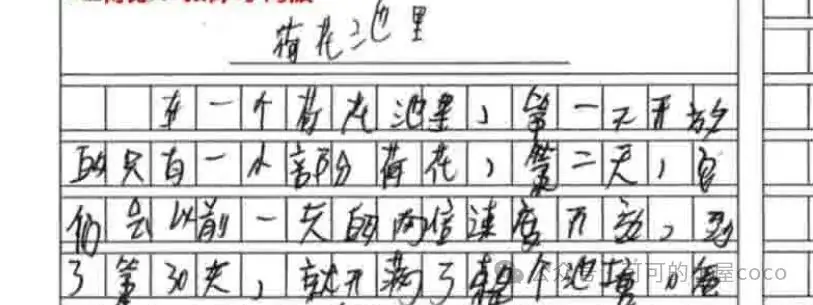 荷花池里
在一个荷花池里，第一天开放
的只有一小部分荷花，第二天，它
们会以前一天的两倍速度开放，到
了第30天，就开满了整个池塘，
公众号 可可的 屋coco